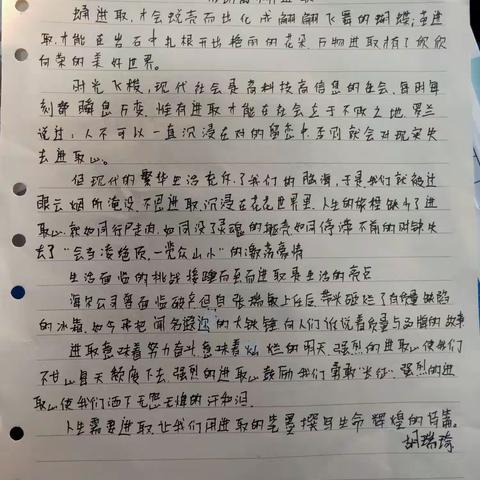 蛹进取,才会蜕壳而出化成翩翩飞舞的蝴蝶;草进
取,才能在岩石中扎根开出艳丽的花朵,万物进取植了欣欣
向荣的美好世界。
时光飞梭,现代社会是高科技高信息的社会,每时每
刻都瞬息万变,惟有进取才能在社会立于不败之地,罗兰
说过:人不可以一直沉浸在对的留恋中,否则就会对现实失
去进取心。
但现代的繁华生活充斥了我们的脑海,于是我们就被过
眼云烟所淹没,不思进取,沉浸在花花世界里,人生的旅程缺少了进
取心,就如同行尸走肉,如同没了灵魂的躯壳如同停滞不前的时钟失
去了“会当凌绝顶,一览众山小”的激荡豪情
生活面临的挑战接踵而至而进取是生活的亮点
海尔公司曾面临破产但自张瑞敏上任后,带头砸烂了有质量缺陷
的冰箱,如今那把闻名遐迩的大铁锤向人们诉说着质量与品牌的故事
进取意味着努力奋斗意味着灿烂的明天,强烈的进取心使我们
不甘心自天颓废下去,强烈的进取心鼓励我们勇敢“长征”,强烈的进
取心使我们洒下无怨无悔的汗和泪.
人生需要进取,让我们用进取的笔墨撰写生命辉煌的诗篇。
胡瑞琦